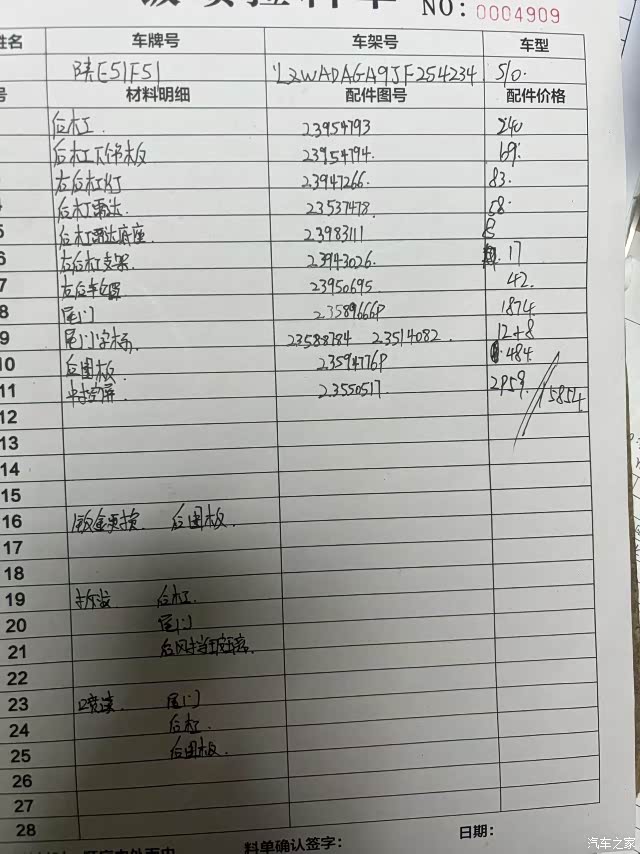 NO: 0004909
姓名 车牌号 车架号 车型
陕E51F51 LZWADAGA9JF254234 510.
号 材料明细 配件图号 配件价格
后杠 23954793 240
后杠下饰板 23954794. 69.
右后杠灯 23947266. 83.
后杠雷达 23537478. 58.
5 后杠雷达底座. 23983111 8
6 右后杠支架. 23943026. 17
7 左后车 23950695. 42.
8 尾门 23589666P 1874.
9 尾门字标 23588784 23514082. 12+8
10 后围板. 23594776P 484.
11 中控屏 23550517. 2959. 5854
12
13
14
15
16 钣金更换. 后围板.
17
18
19 拆装 后杠.
20 尾门
21 后风挡玻璃.
22
23 喷漆. 尾门
24 后杠.
25 后围板.
26
27
28
料单确认签字: 日期:
汽车之家